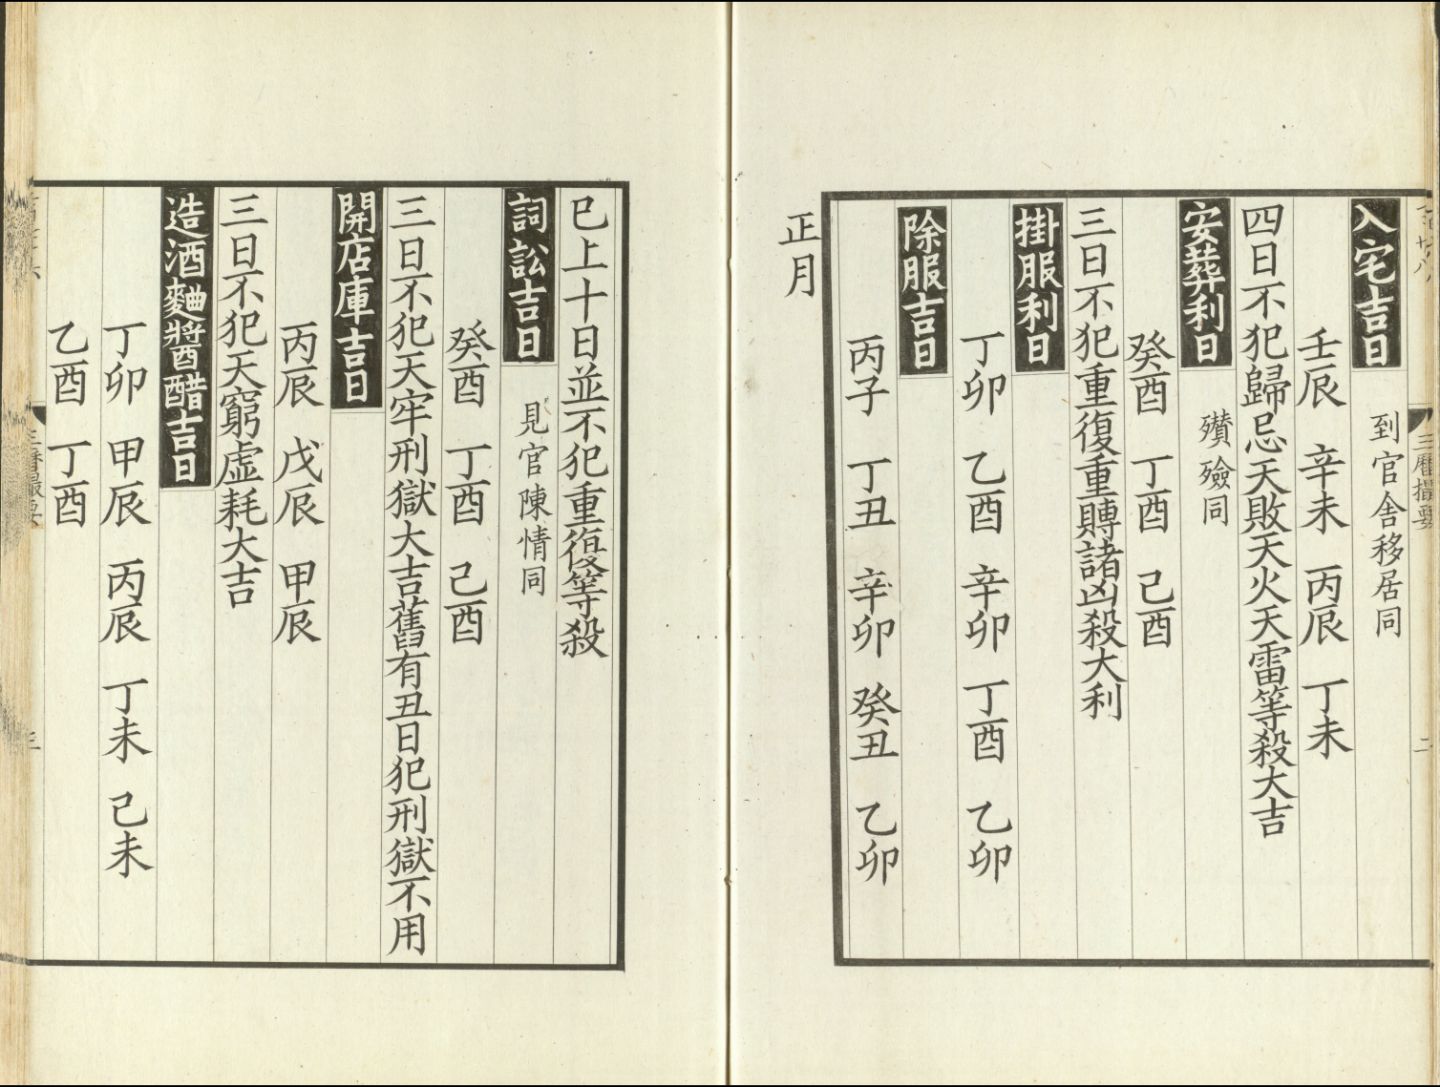 入宅吉日 到官舍移居同
壬辰 辛未 丙辰 丁未
四日不犯歸忌天敗天火天雷等殺大吉
安葬利日 殯殮同
癸酉 丁酉 己酉
三日不犯重復重賻諸凶殺大利
掛服利日
丁卯 乙酉 辛卯 丁酉 乙卯
除服吉日
丙子 丁丑 辛卯 癸丑 乙卯
正月
巳上十日並不犯重復等殺
詞訟吉日 見官陳情同
癸酉 丁酉 己酉
三日不犯天牢刑獄大吉舊有丑日犯刑獄不用
開店庫吉日
丙辰 戊辰 甲辰
三日不犯天窮虛耗大吉
造酒麴醬醋吉日
丁卯 甲辰 丙辰 丁未 己未
乙酉 丁酉